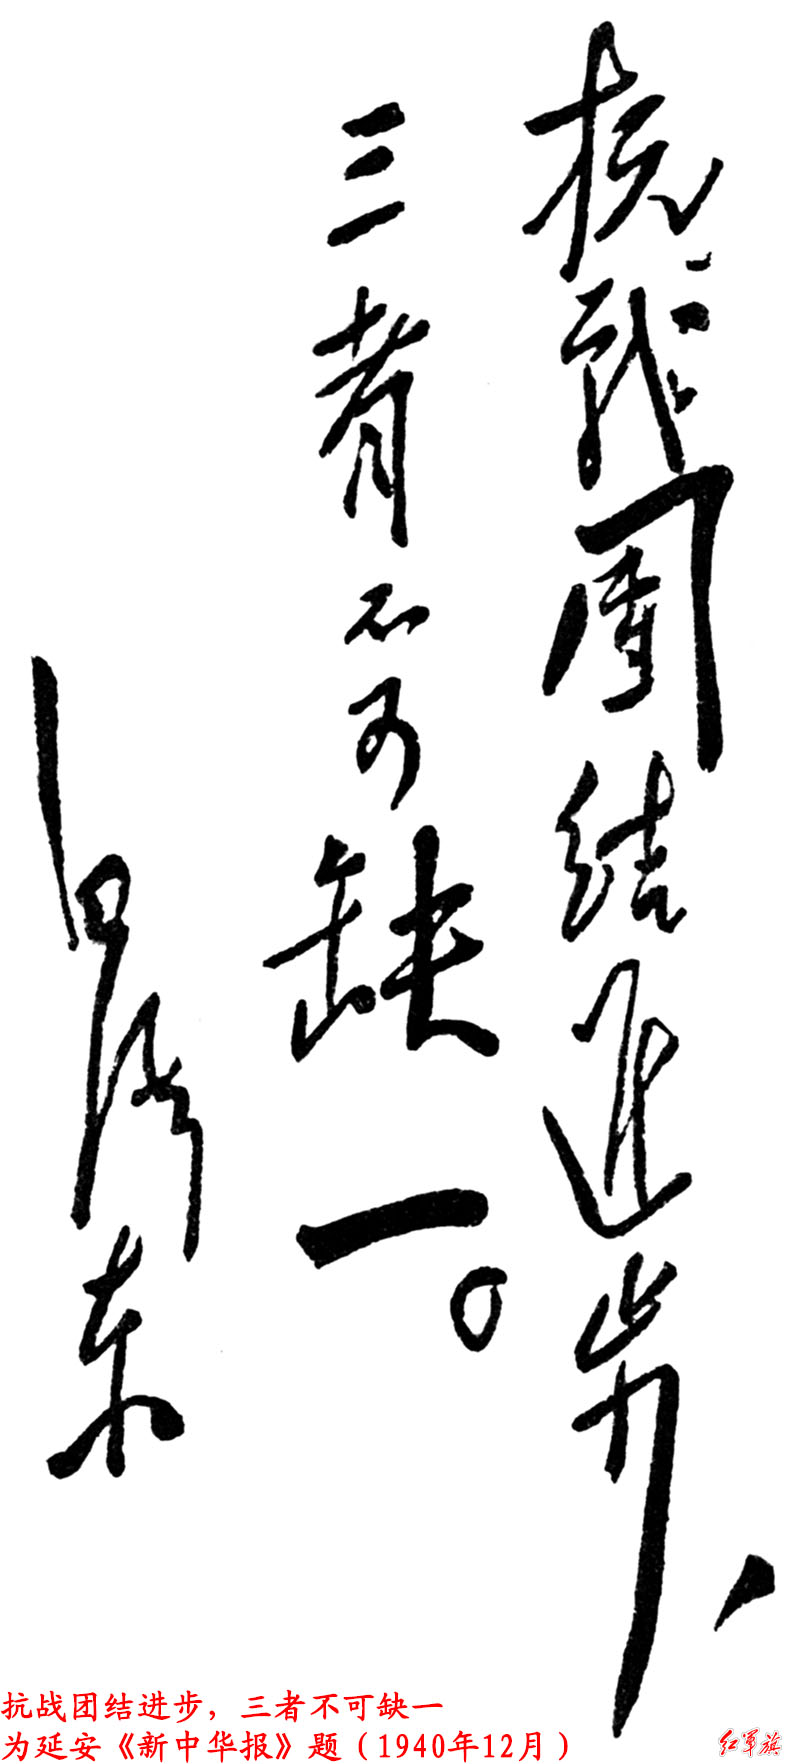 抗战团结进步，
三者不可缺一。
毛泽东
抗战团结进步，三者不可缺一
为延安《新中华报》题（1940年12月）
红军旗